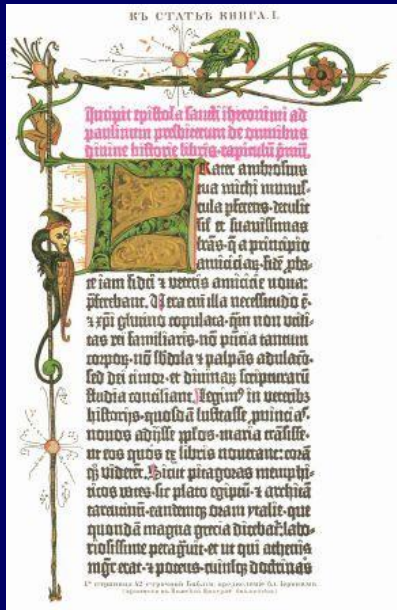 КЪ СТАТЬѢ КНИГА. I.
Incipit epistola sancti iheronimi ad
paulinum presbiterum de omnibus
divine historie libris. capitulū pmū.
Frater ambrosius
tua michi munus-
cula pferens. detulit
sil et suavissimas
lrās. q a principio
amiciciaꝝ. fidē pba-
te iam fidei ⁊ veteris amicicie nova:
pferebant. Vera em̄ illa necessitudo ē.
⁊ xpi glutino copulata. qm̄ non utili-
tas rei familiaris. nō pn̄cia tantum
corpoꝝ. nō sbdola ⁊ palpās adulacō.
sed dei timor. et divinaꝝ scripturarū
studia conciliant. Legim⁹ in veterib⁹
historijs. quosdā lustrasse pvincias.
novos adijsse pplos. maria trāsisse.
ut eos quos ex libris noverant: corā
qꝫ viderēt. Sicut pitagoras memphi-
ticos vates. sic plato egiptū. ⁊ architā
tarentinū. eandemqꝫ oram ytalie. que
quondā magna grecia dicebat: labo-
riosissime peragravit. et ut qui athenis
mgr̄ erat. ⁊ potens. cuiusqꝫ doctrinas
1ᵃ страница 42 строчной Библіи. предисловіе бл. Іеронима.